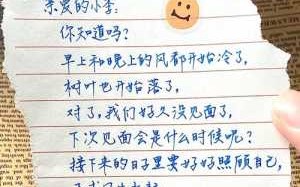 亲爱的小李：
你知道吗？
早上和晚上的风都开始冷了，
树叶也开始落了，
对了，我们好久没见面了，
下次见面会是什么时候呢？
接下来的日子里要好好照顾自己，